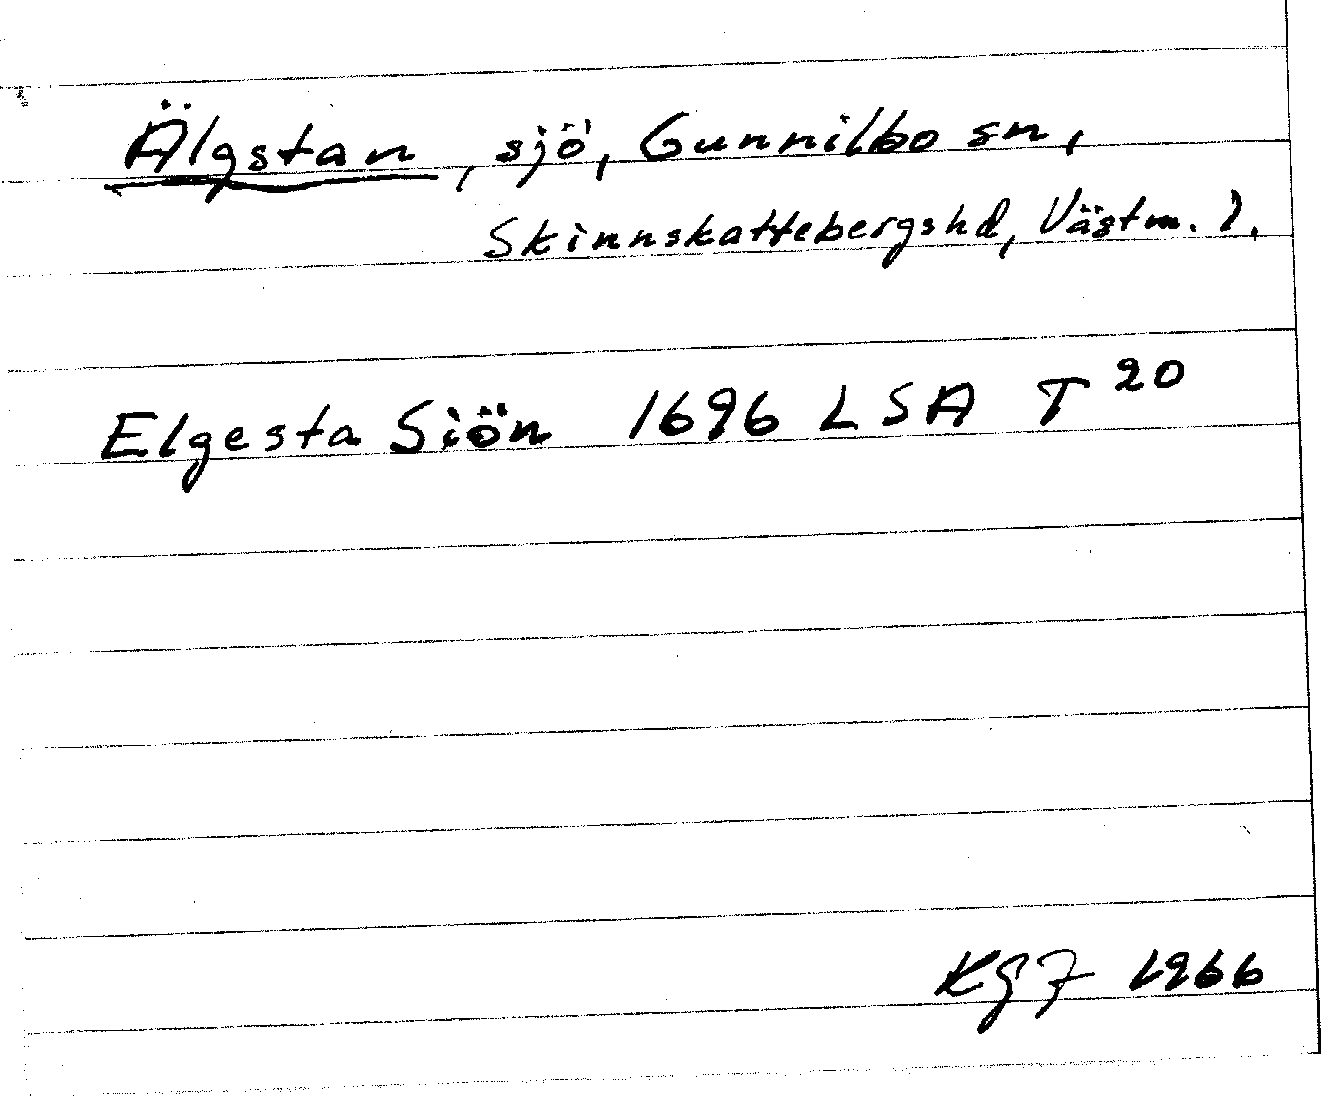 Älgstan, sjö, Gunnilbo sn,
Skinnskattebergshd, Västm. l.
Elgesta Siön 1696 LSA T 20
KGF 1966